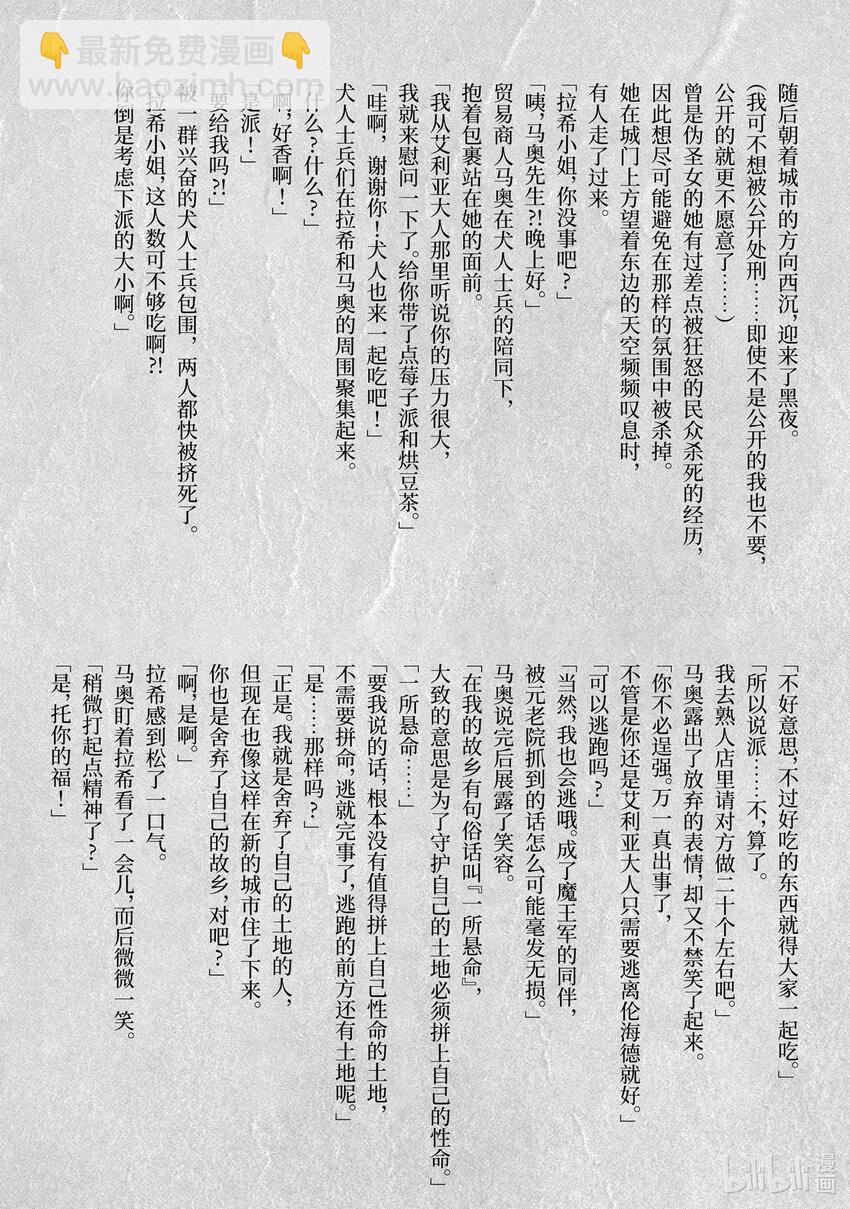 最新免费漫画
www.baozimh.com
随后朝着城市的方向西沉，迎来了黑夜。
(我可不想被公开处刑……即使不是公开的我也不要，
公开的就更不愿意了……)
曾是伪圣女的她有过差点被狂怒的民众杀死的经历，
因此想尽可能避免在那样的氛围中被杀掉。
她在城门上方望着东边的天空频频叹息时，
有人走了过来。
「拉希小姐，你没事吧？」
「咦，马奥先生?!晚上好。」
贸易商人马奥在犬人士兵的陪同下，
抱着包裹站在她的面前。
「我从艾利亚大人那里听说你的压力很大，
我就来慰问一下了。给你带了点莓子派和烘豆茶。」
「哇啊，谢谢你！犬人也来一起吃吧！」
犬人士兵们在拉希和马奥的周围聚集起来。
「什么？什么？」
「啊，好香啊！」
「是派！」
「要给我吗?!」
被一群兴奋的犬人士兵包围，两人都快被挤死了。
「拉希小姐，这人数可不够吃啊?!
你倒是考虑下派的大小啊。」
「不好意思，不过好吃的东西就得大家一起吃。」
「所以说派……不，算了。
我去熟人店里请对方做二十个左右吧。」
马奥露出了放弃的表情，却又不禁笑了起来。
「你不必逞强。万一真出事了，
不管是你还是艾利亚大人只需要逃离伦海德就好。」
「可以逃跑吗？」
「当然，我也会逃哦。成了魔王军的同伴，
被元老院抓到的话怎么可能毫发无损。」
马奥说完后展露了笑容。
「在我的故乡有句俗话叫『一所悬命』，
大致的意思是为了守护自己的土地必须拼上自己的性命。」
「一所悬命……」
「要我说的话，根本没有值得拼上自己性命的土地，
不需要拼命，逃就完事了，逃跑的前方还有土地呢。」
「是……那样吗？」
「正是。我就是舍弃了自己的土地的人，
但现在也像这样在新的城市住了下来。
你也是舍弃了自己的故乡，对吧？」
「啊，是啊。」
拉希感到松了一口气。
马奥盯着拉希看了一会儿，而后微微一笑。
「稍微打起点精神了？」
「是，托你的福！」
bilibili漫画